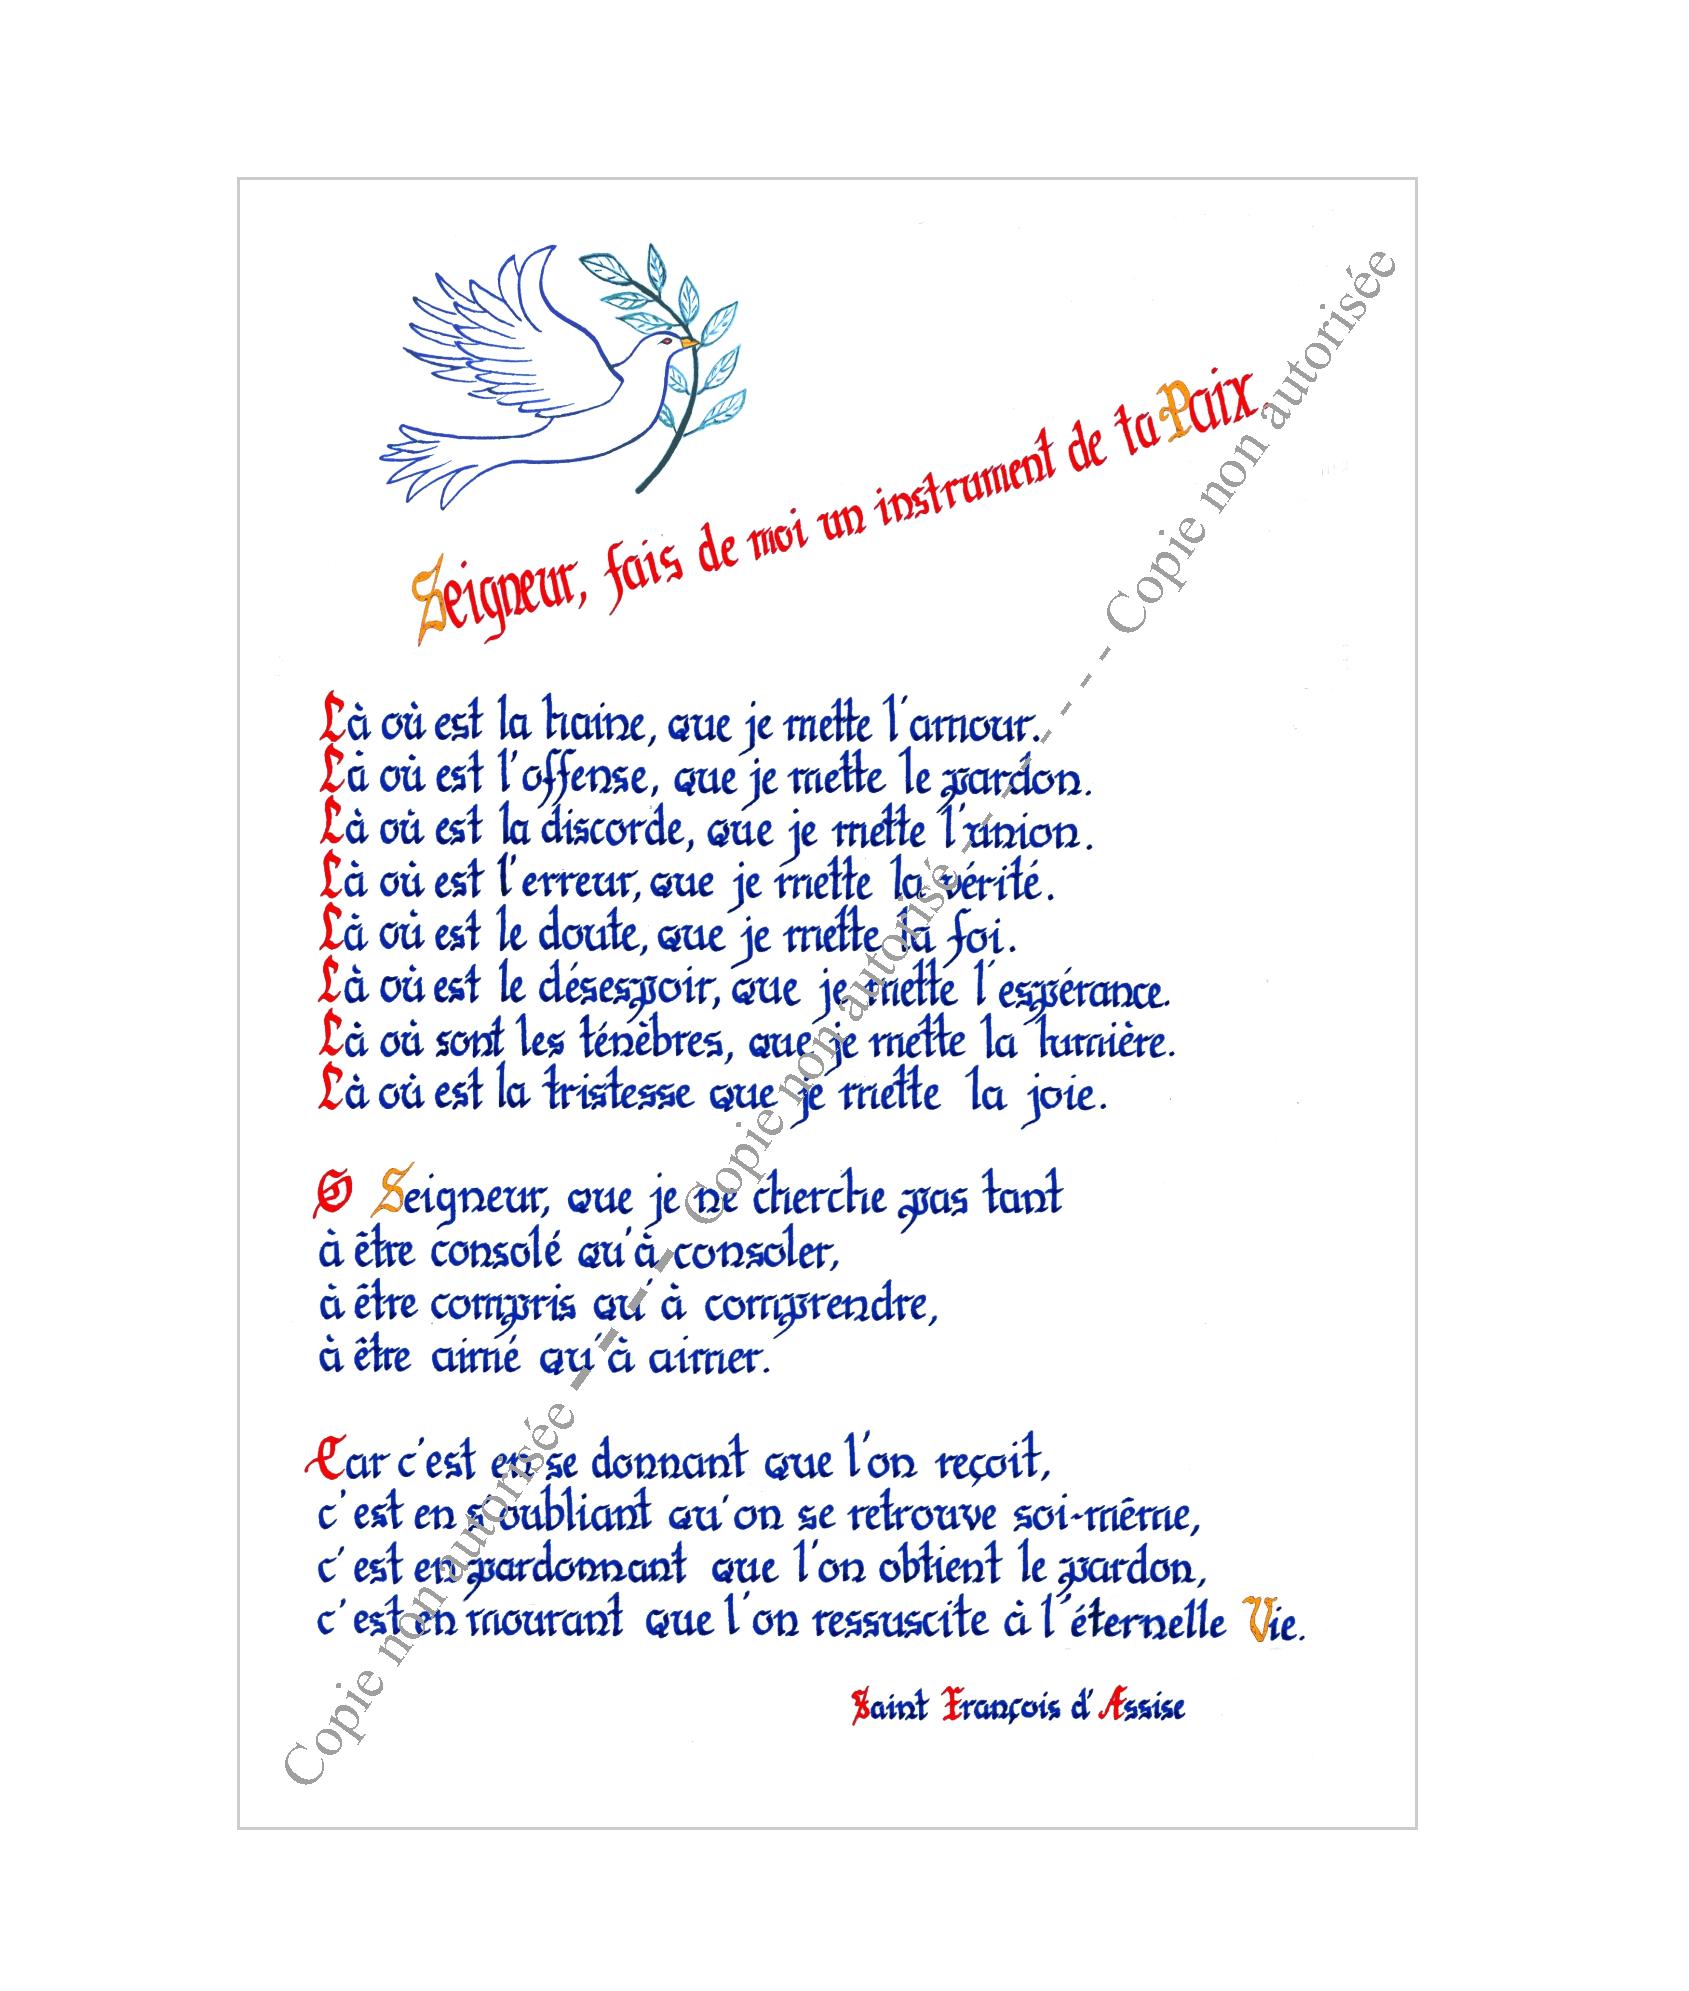 Seigneur, fais de moi un instrument de ta Paix.
Là où est la haine, que je mette l'amour.
Là où est l'offense, que je mette le pardon.
Là où est la discorde, que je mette l'union.
Là où est l'erreur, que je mette la vérité.
Là où est le doute, que je mette la foi.
Là où est le désespoir, que je mette l'espérance.
Là où sont les ténèbres, que je mette la lumière.
Là où est la tristesse que je mette la joie.
O Seigneur, que je ne cherche pas tant
à être consolé qu'à consoler,
à être compris qu'à comprendre,
à être aimé qu'à aimer.
Car c'est en se donnant que l'on reçoit,
c'est en s'oubliant qu'on se retrouve soi-même,
c'est en pardonnant que l'on obtient le pardon,
c'est en mourant que l'on ressuscite à l'éternelle Vie.
Saint François d'Assise
Copie non autorisée - - - - Copie non autorisé - - - - - - Copie non autorisée